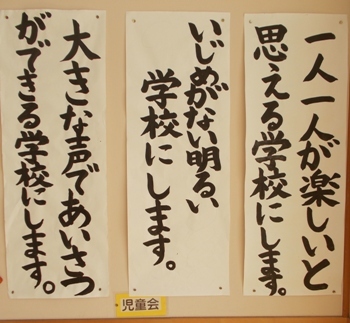 一人一人が楽しいと
思える学校にします。
いじめがない明るい
学校にします。
大きな声であいさつ
ができる学校にします。
児童会